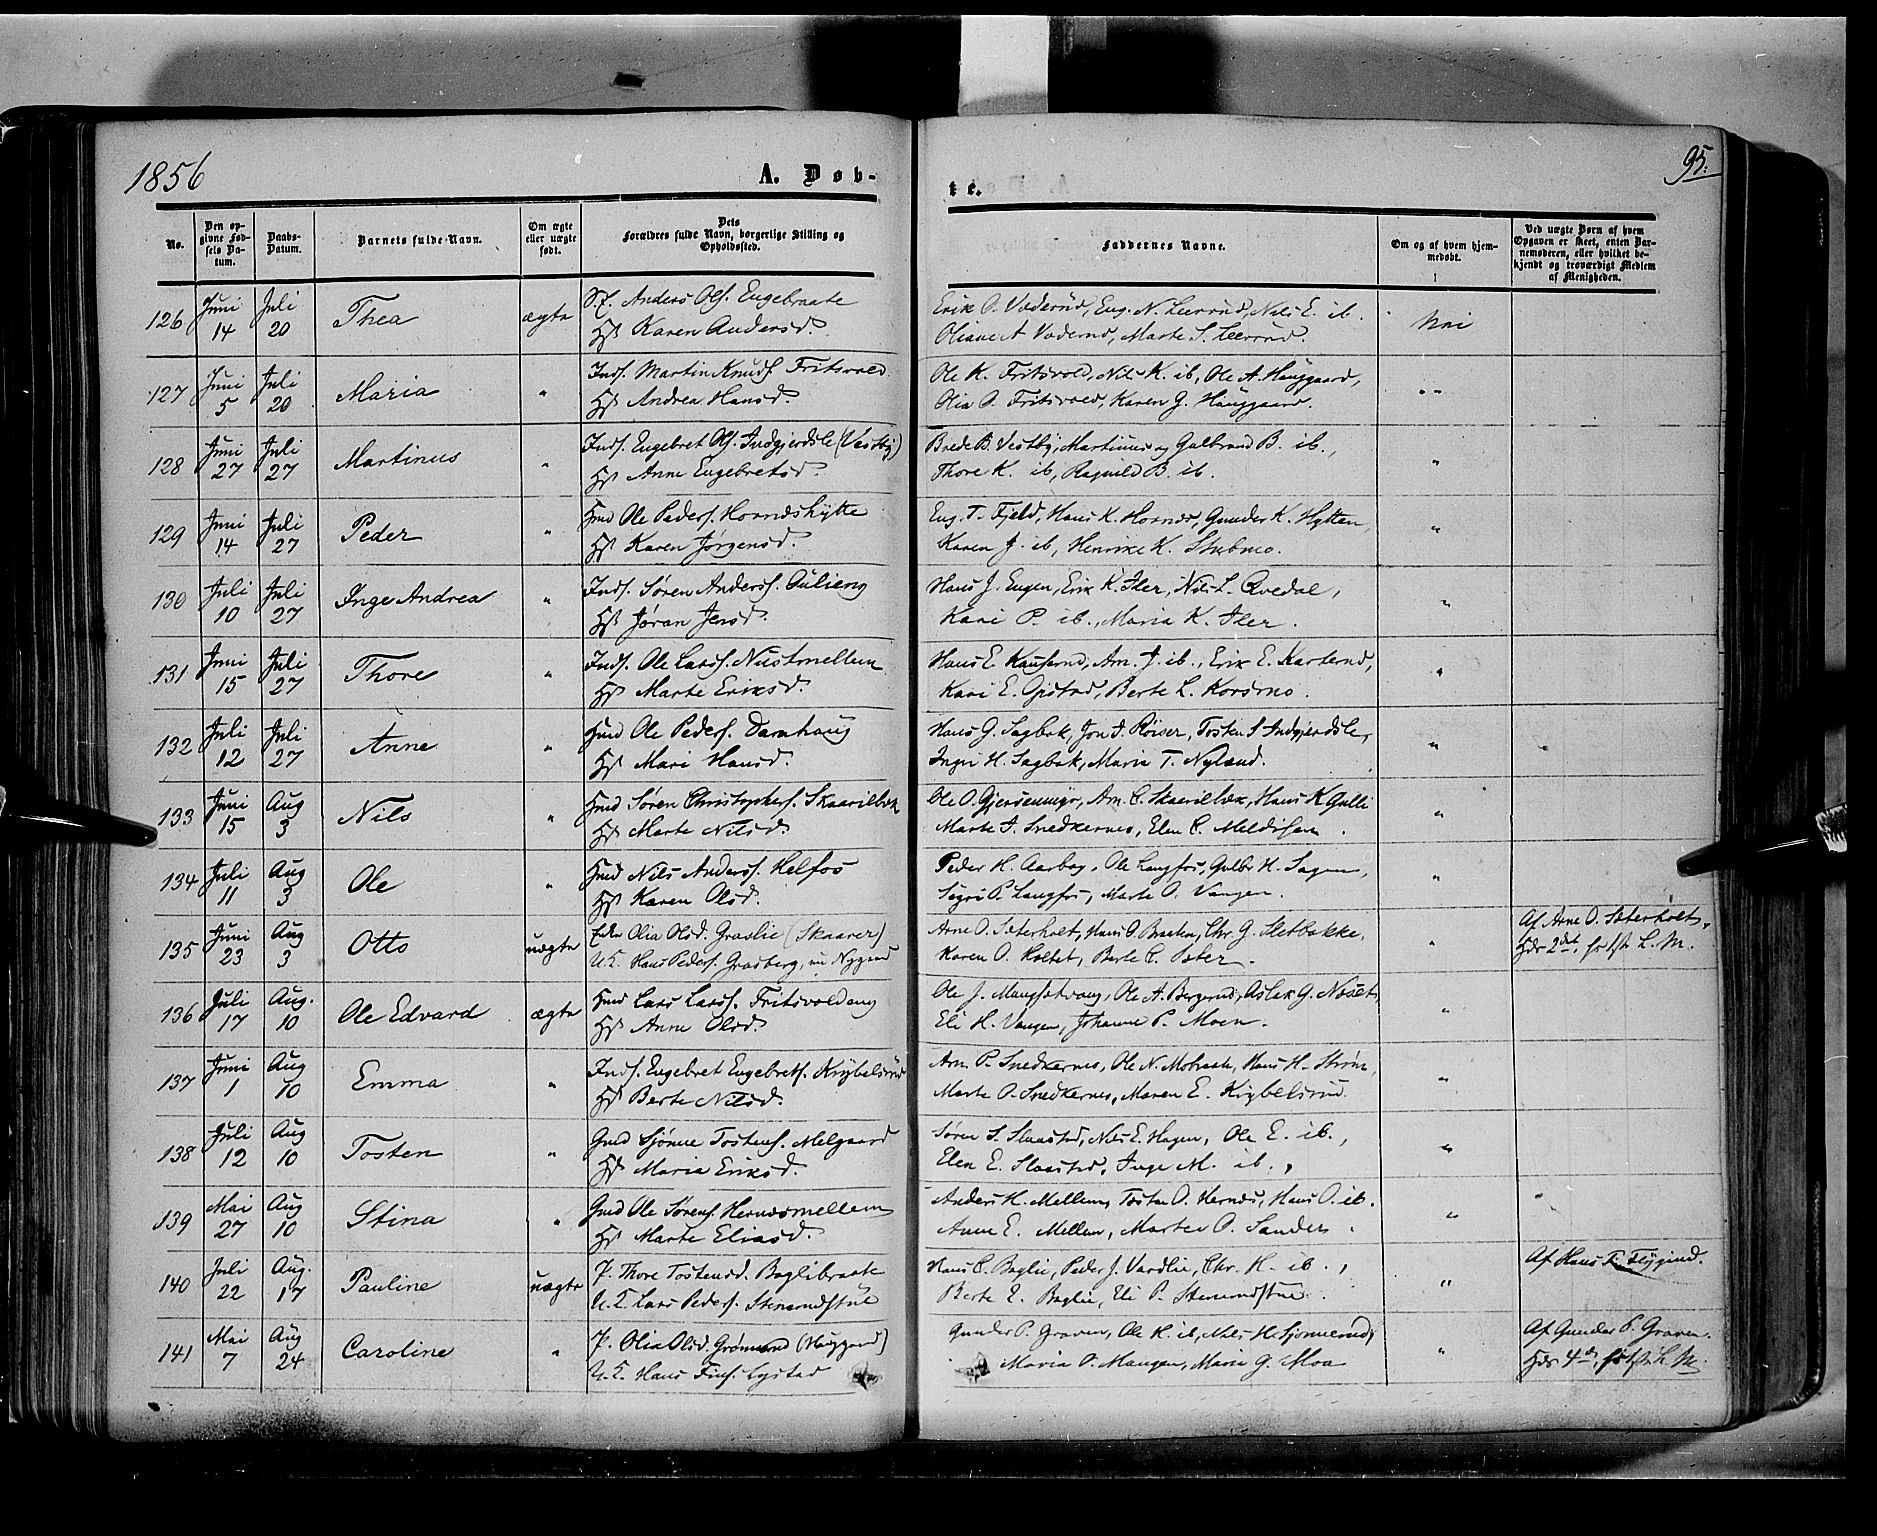 1856
A. Døb-
te.
95.
No.
Den opgivne Fødsels Datum.
Daabs-Datum.
Barnets fulde Navn.
Om ægte eller uægte født.
Dets Forældres fulde Navn, borgerlige Stilling og Opholdssted.
Faddernes Navne.
Om og af hvem hjemmedøbt.
Ved uægte Børn af hvem Opgaven er skeet, enten Barnemoderen, eller hvilket bekjendt og troværdigt Medlem af Menigheden.
126 Juni 14 Juli 20 Thea ægte Anders Ols. Engebraate
Karen Andersd.
Erik O. Vaderud, Eng. N. Leerrud, Nils E. ib.
Oliane A Vaderud, Marte S. Leerrud.
Nei
127 Juni 5 Juli 20 Maria " Inds. Martin Knuds. Fritsvold
Andrea Hansd.
Ole K. Fritsvold, Nils K. ib, Ole A. Hauggaard,
Olia O. Fritsvold, Karen G. Hauggaard.
" "
128 Juni 27 Juli 27 Martinus " Inds. Engebret Ols. Indgjerdsle (Vestby)
Anne Engebretsd.
Brede B. Vestby, Martinus og Gulbrand B. ib.,
Thore K. ib, Ragnild B. ib.
"
129 Juni 14 Juli 27 Peder " Hmd Ole Peders. Hornæshytte
Karen Jørgensd.
Eng. T. Fjeld, Hans K. Hornæs, Gunder K. Hytten,
Karen J. ib, Henrike K. Stubmo.
"
130 Juli 10 Juli 27 Inge Andrea " Inds. Søren Anderss. Oulieng
Jøran Jensd.
Hans J. Eugen, Erik K. Iler, Nils L. Qvedal,
Kari P. ib., Maria K. Iler.
"
131 Juni 15 Juli 27 Thore " Inds. Ole Larss. Nustmellem
Marte Eriksd.
Hans E. Kauserud, Am. J. ib., Erik E. Karterud,
Kari E. Opstad, Berte L. Korsmo.
"
132 Juli 12 Juli 27 Anne " Hmd Ole Peders. Damhaug
Mari Hansd.
Hans G. Sagbak, Jon J. Røiser, Tosten S Indgjerdsle,
Ingri H. Sagbak, Marie T. Nyland.
"
133 Juni 15 Aug 3 Nils " Hmd Søren Christophers. Skaarilbæk
Marte Nilsd.
Ole O. Gjersenmyr, Am. C. Skaarilbæk, Hans K Gulli
Marte J. Snedkernes, Elen C. Meldisen.
"
134 Juli 11 Aug 3 Ole " Hmd Nils Anderss. Helfos
Karen Olsd.
Peder H. Aarbog, Ole Langfos, Gulbr H. Sagen,
Sigri P. Langfos, Marte O. Vangen.
"
135 Juni 23 Aug 3 Otto uægte Olia Olsd. Graslie (Skaarer)
U.K. Hans Peders. Grasberg, nu Nygaard
Arne O. Sæterholt, Hans O. Braaten, Chr. G. Sletbakke,
Karen O. Holtet, Berte C. Sæter.
"
Af Arne O. Sæterholt.
Hds 2det, fs f. L. M.
136 Juli 17 Aug. 10 Ole Edvard ægte Hmd Lars Larss. Fritsvoldeng
Anne Olsd.
Ole J. Mangsetvang, Ole A. Bergerud, Aslak G. Næset,
Eli H. Vangen, Johanne P. Moen.
"
137 Juni 1 Aug 10 Emma " Inds. Engebret Engebrets. Knybelsrud
Berte Nilsd.
Am. P. Snedkernes, Ole N. Mobraate, Hans H. Strøm,
Marte O. Snedkernes, Maren E. Knybelsrud.
"
138 Juli 12 Aug 10 Tosten " Gmd Sjønne Tostens. Melgaard
Maria Eriksd.
Søren S. Slaastad, Nils E. Hagen, Ole E. ib.,
Elen E. Slaastad, Inge M. ib.,
"
139 Mai 27 Aug 10 Stina " Gmd Ole Sørens. Hernæsmellem
Marte Eliasd.
Anders H. Mellem, Tosten O. Hernæs, Hans O. ib.
Anne E. Mellem, Marthe O. Sander.
"
140 Juli 22 Aug. 17 Pauline uægte P. Thore Tostensd. Baglibraate
U.K. Lars Peders. Stenerudstue
Hans C. Baglie, Peder J. Vardlie, Chr. H. ib.,
Berte E. Baglie, Eli P. Stenerudstue.
"
Af Hans T. Flygind.
141 Mai 7 Aug 24 Caroline " P. Olia Olsd. Grønnerud (Hauggaard)
U.K. Hans Fins. Lystad
Gunder P. Graven, Ole H. ib, Nils H. Sjonnerud,
Maria O. Maugen, Marie G. Moa
"
Af Gunder P. Graven.
Hds 4de, fs f. L. M.